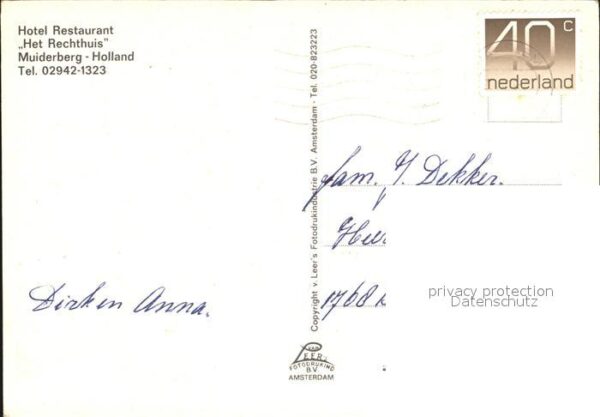 Hotel Restaurant
„Het Rechthuis”
Muiderberg - Holland
Tel. 02942-1323
40 c
nederland
Copyright v. Leer's Fotodrukindustrie B.V. Amsterdam - Tel. 020-823223
fam. Y. Dekker.
1768
privacy protection
Datenschutz
Dirk en Anna.
van
LEER's
FOTODRUKIND
B.V.
AMSTERDAM